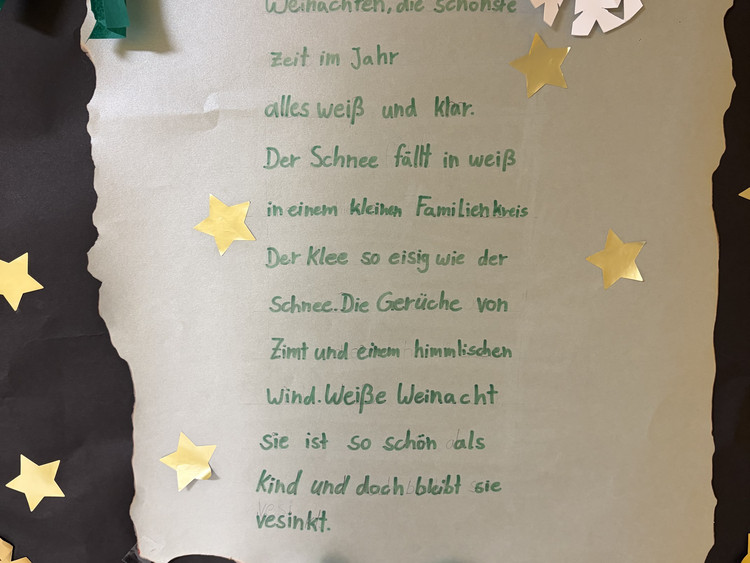 Weinachten, die schönste
Zeit im Jahr
alles weiß und klar.
Der Schnee fällt in weiß
in einem kleinen Familienkreis
Der Klee so eisig wie der
Schnee. Die Gerüche von
Zimt und einem himmlischen
Wind. Weiße Weinacht
sie ist so schön als
Kind und doch bleibt sie
vesinkt.